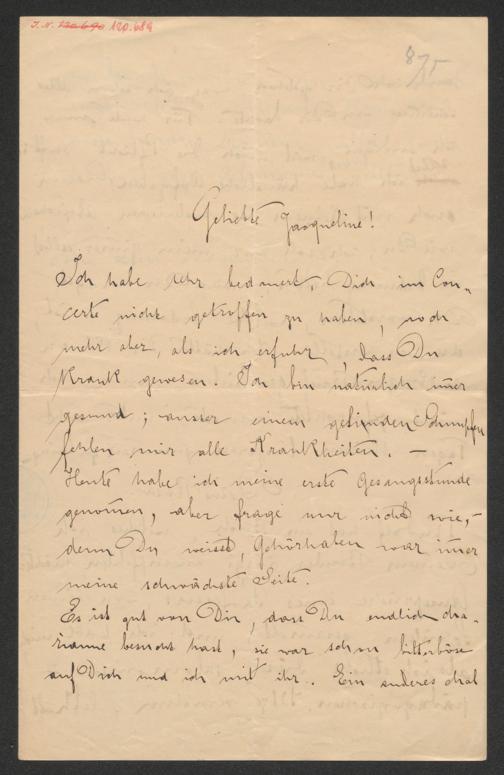 J. N. 120.690 120.689
875
Geliebte Jacqueline!
Ich habe sehr bedauert, Dich im Con-
certe nicht getroffen zu haben, noch
mehr aber, als ich erfuhr, dass Du
krank gewesen. Ich bin natürlich im̅er
gesund; ausser einem gelinden Schnupfen
fehlen mir alle Krankheiten. —
Heute habe ich meine erste Gesangsstunde
genom̅en, aber frage nur nicht wie,—
denn Du weisst, Gehörhaben war im̅er
meine schwächste Seite.
Es ist gut von Dir, dass Du endlich
besucht hast, sie war schon bitterböse
auf Dich und ich mit ihr. Ein anderes Mal